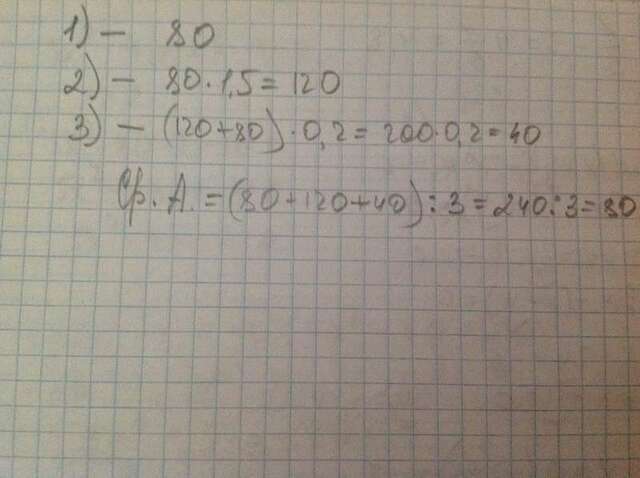 1) – 80
2) – 80·1,5 = 120
3) – (120+80)·0,2 = 200·0,2 = 40
Ср. А. = (80+120+40):3 = 240:3 = 80